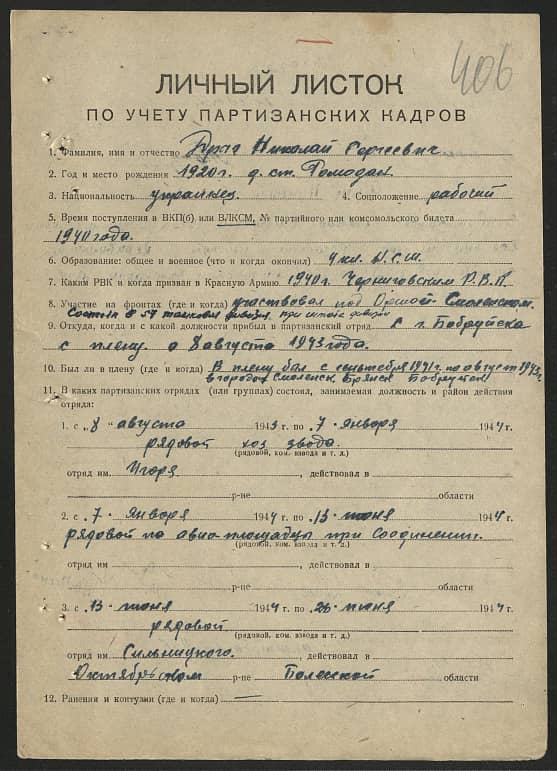 406
ЛИЧНЫЙ ЛИСТОК
ПО УЧЕТУ ПАРТИЗАНСКИХ КАДРОВ
1. Фамилия, имя и отчество Николай Сергеевич
2. Год и место рождения 1920г. д. ст. Ромодан
3. Национальность украинец 4. Соцположение рабочий
5. Время поступления в ВКП(б) или ВЛКСМ, № партийного или комсомольского билета
1940 года.
6. Образование: общее и военное (что и когда окончил) 4 кл. Н.С.Ш.
7. Каким РВК и когда призван в Красную Армию 1940г. Черниговским Р.В.К.
8. Участие на фронтах (где и когда) участвовал под Оршой Смоленском.
Состоял в 57 танковой дивизия, при штабе дивизии
9. Откуда, когда и с какой должности прибыл в партизанский отряд с г. Бобруйска
с плену 8 августа 1943 года.
10. Был ли в плену (где и когда) В плену был с сентября 1941г. по август 1943г.
в городах Смоленск Брянск Бобруйск
11. В каких партизанских отрядах (или группах) состоял, занимаемая должность и район действия
отряда:
1. с „8" августа 1943 г. по 7 января 1944 г.
рядовой хоз звода.
(рядовой, ком. взвода и т. д.)
отряд им. Игоря , действовал в
р-не области
2. с 7 января 1944 г. по 13 июня 1944 г.
рядовой по авиа-площадцы при Соединении.
(рядовой, ком. взвода и т. д.)
отряд им , действовал в
р-не области
3. с 13 июня 1944 г. по 26 июня 1944 г.
рядовой
(рядовой, ком. взвода и т. д.)
отряд им. Сильницкого. , действовал в
Октябрьском р-не Полеской области
12. Ранения и контузии (где и когда) —